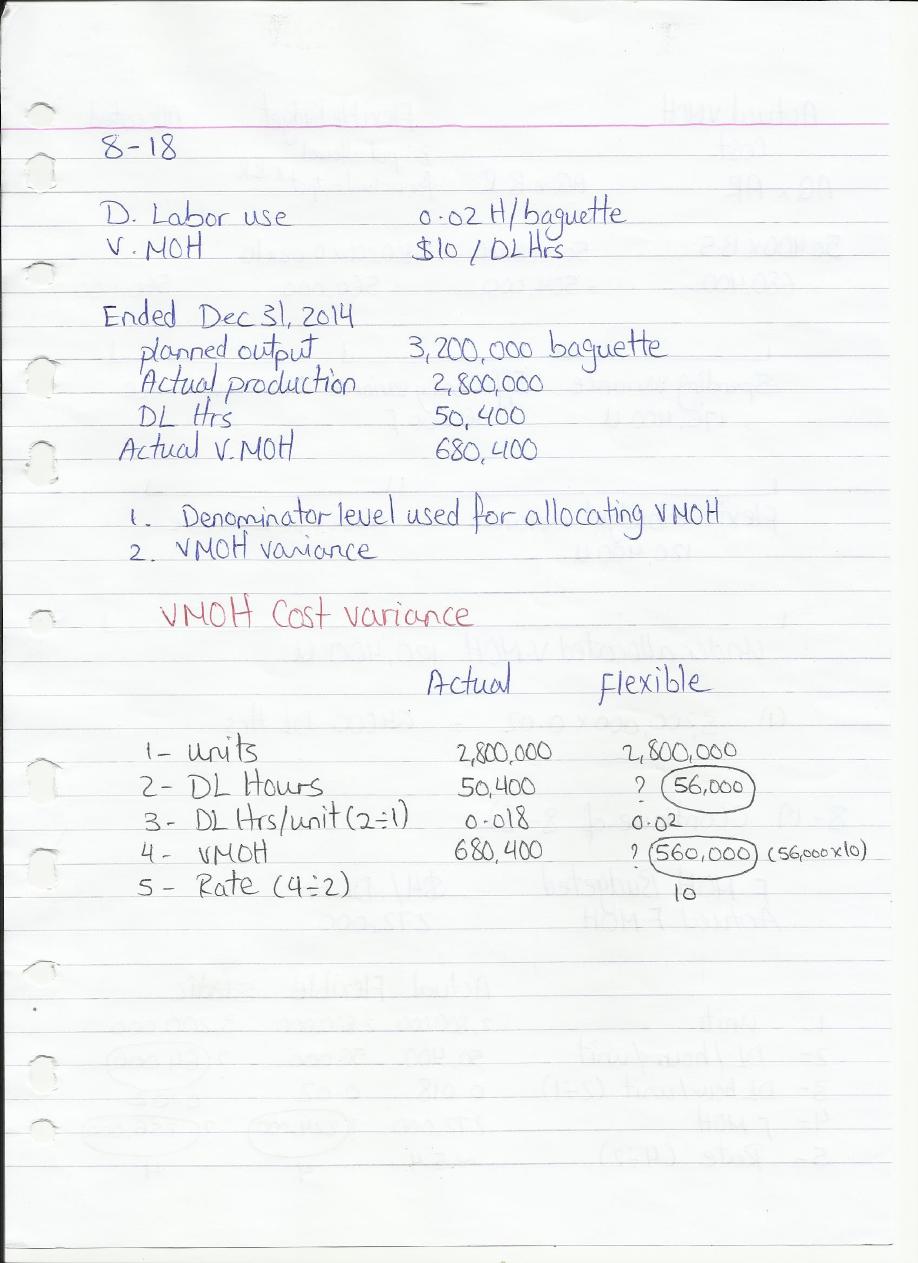 8-18
D. Labor use 0.02 H/baguette
V. MOH $10 / DL Hrs
Ended Dec 31, 2014
planned output 3,200,000 baguette
Actual production 2,800,000
DL Hrs 50,400
Actual V.MOH 680,400
1. Denominator level used for allocating VMOH
2. VMOH variance
VMOH Cost variance
Actual flexible
1- units 2,800,000 2,800,000
2- DL Hours 50,400 ? 56,000
3- DL Hrs/unit (2÷1) 0.018 0.02
4- VMOH 680,400 ? 560,000 (56,000x10)
5- Rate (4÷2) 10